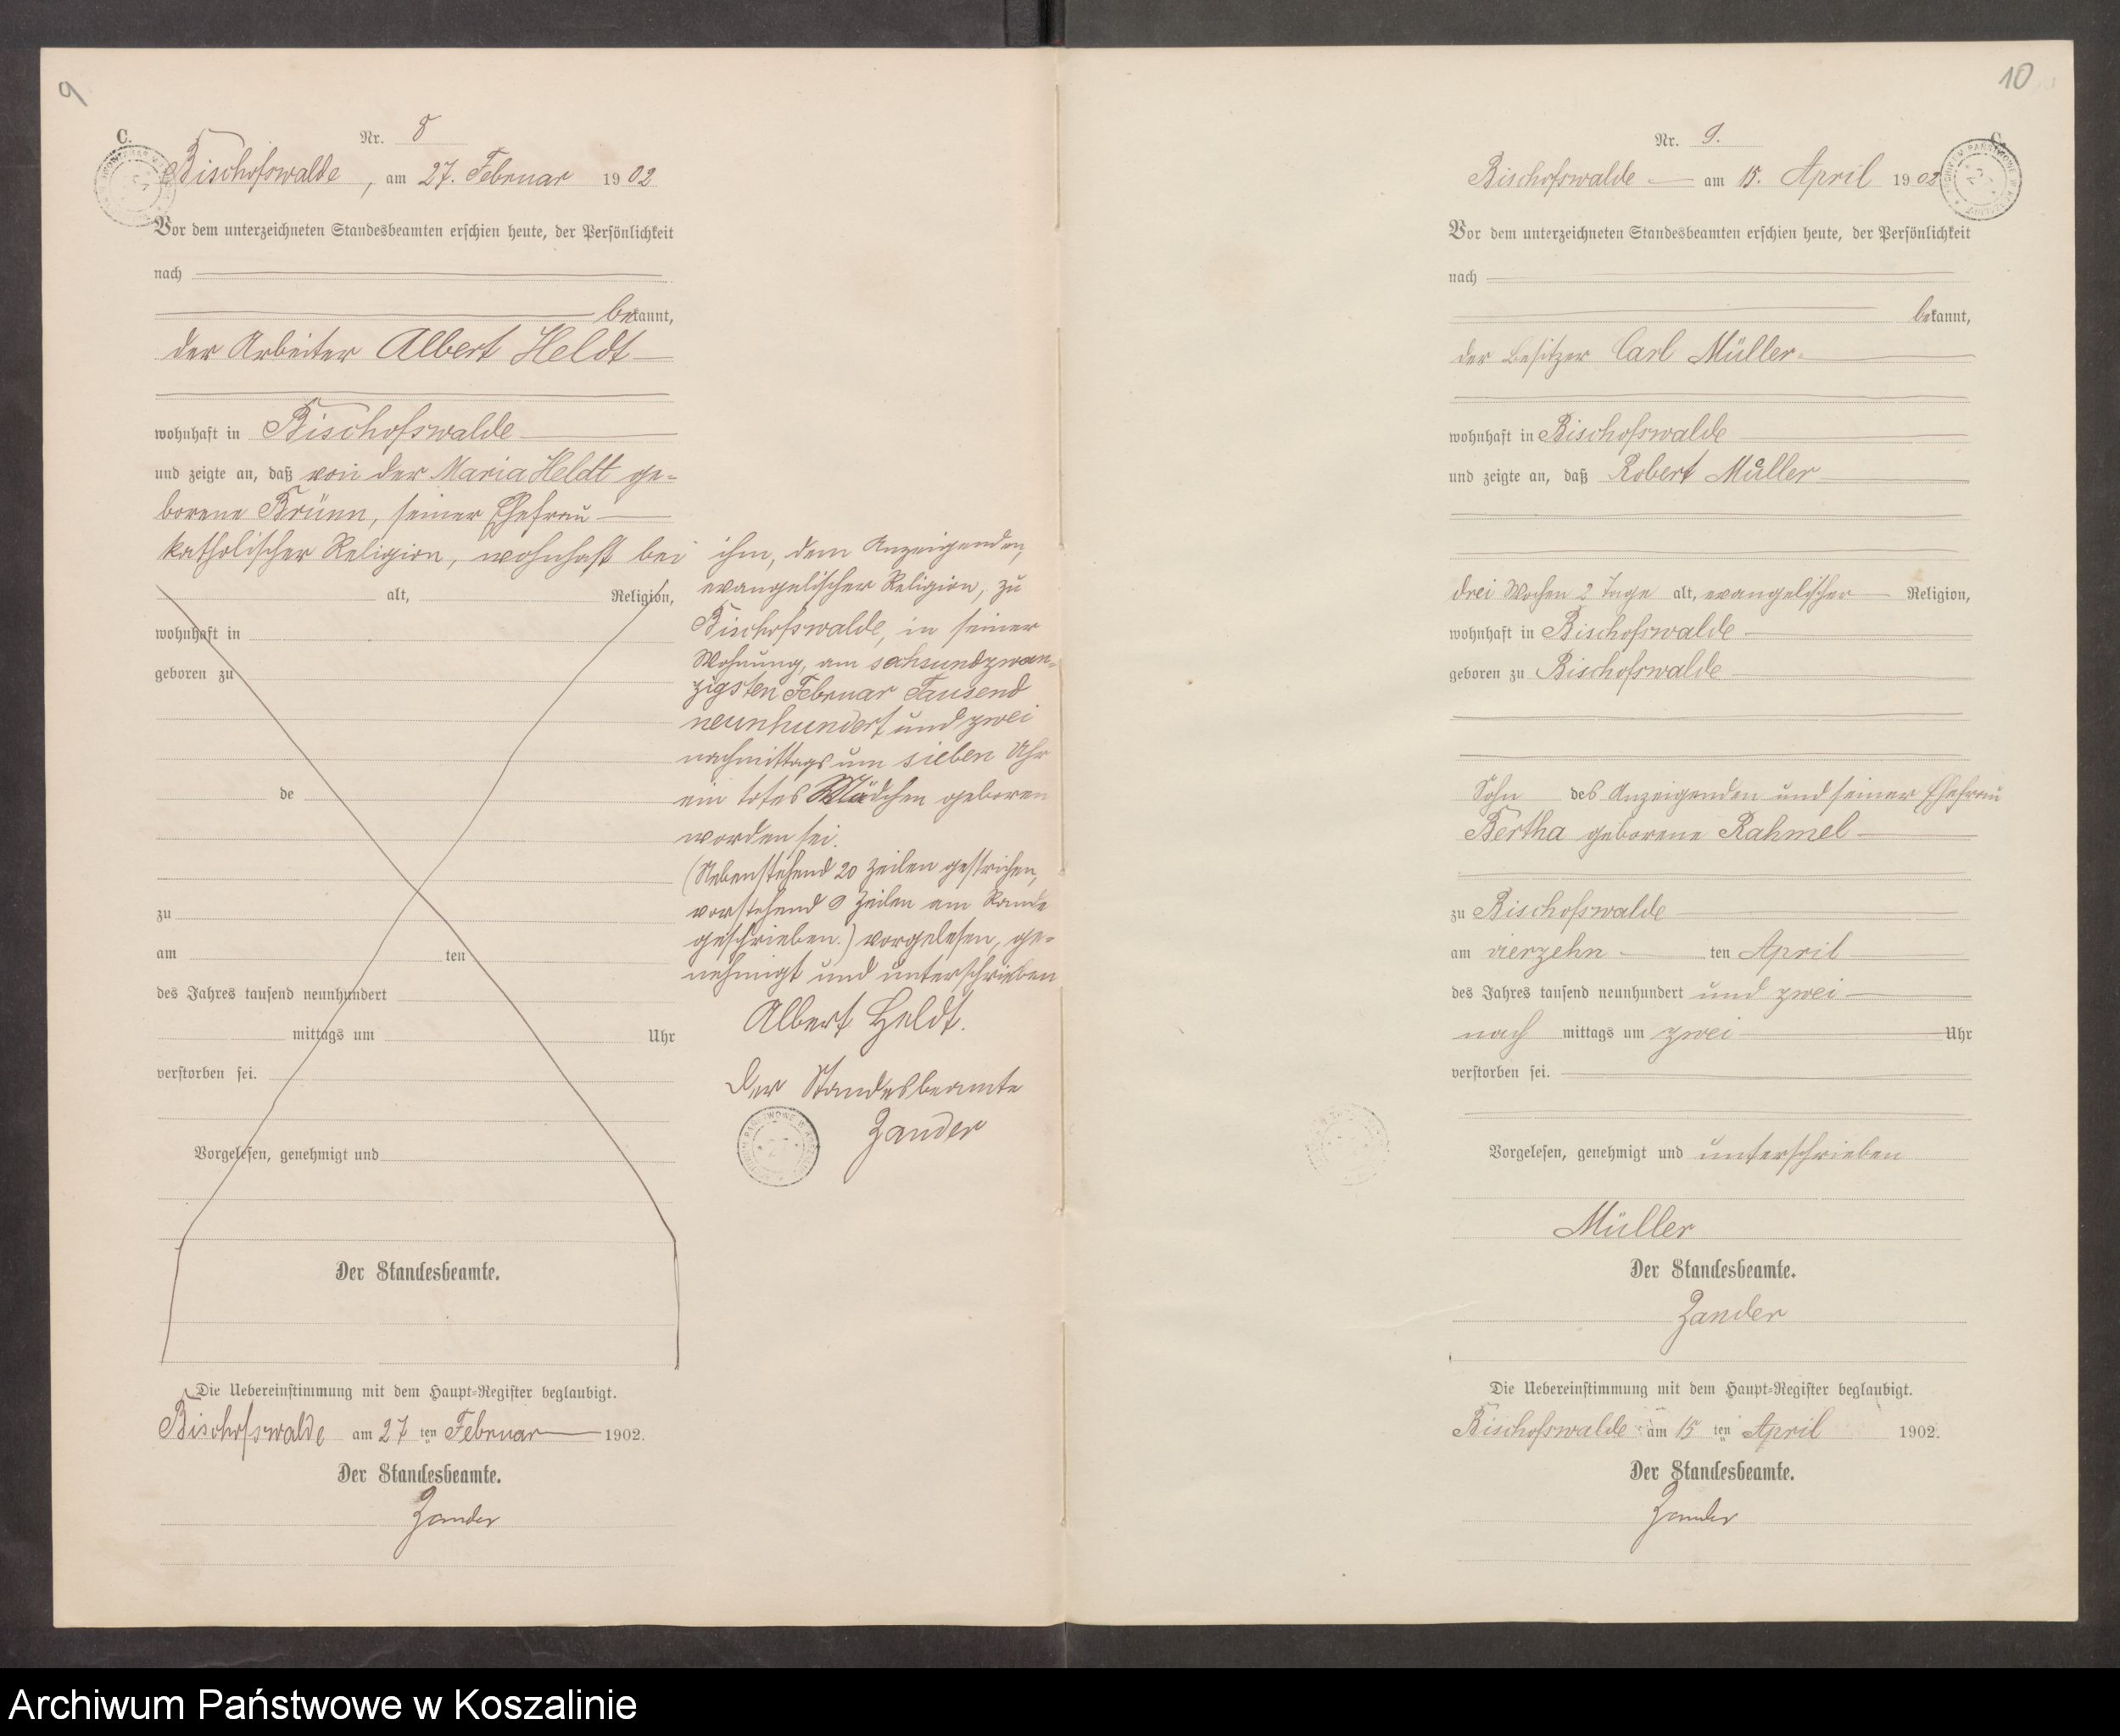 9
C.
Nr. 8
Bischofswalde, am 27. Februar 1902
Vor dem unterzeichneten Standesbeamten erschien heute, der Persönlichkeit
nach
bekannt,
der Arbeiter Albert Heldt
wohnhaft in Bischofswalde
und zeigte an, daß von der Maria Heldt ge=
borene Brünn, seiner Ehefrau
katholischer Religion, wohnhaft bei
alt, Religion,
wohnhaft in
geboren zu
de
zu
am ten
des Jahres tausend neunhundert
mittags um Uhr
verstorben sei.
Vorgelesen, genehmigt und
Der Standesbeamte.
Die Uebereinstimmung mit dem Haupt=Register beglaubigt.
Bischofswalde am 27 ten Februar 1902.
Der Standesbeamte.
Zander
ihm, dem Anzeigenden,
evangelischer Religion, zu
Bischofswalde, in seiner
Wohnung, am sechsundzwan=
zigsten Februar Tausend
neunhundert und zwei
nachmittags um sieben Uhr
ein totes Mädchen geboren
worden sei.
(Nebenstehend 20 Zeilen gestrichen,
vorstehend 9 Zeilen am Rande
geschrieben.) vorgelesen, ge=
nehmigt und unterschrieben
Albert Heldt.
Der Standesbeamte
Zander
10
C.
Nr. 9.
Bischofswalde am 15. April 1902
Vor dem unterzeichneten Standesbeamten erschien heute, der Persönlichkeit
nach
bekannt,
der Besitzer Carl Müller
wohnhaft in Bischofswalde
und zeigte an, daß Robert Müller
drei Wochen 2 Tage alt, evangelischer Religion,
wohnhaft in Bischofswalde
geboren zu Bischofswalde
Sohn des Anzeigenden und seiner Ehefrau
Bertha geborene Rahmel
zu Bischofswalde
am vierzehn ten April
des Jahres tausend neunhundert und zwei
nach mittags um zwei Uhr
verstorben sei.
Vorgelesen, genehmigt und unterschrieben
Müller
Der Standesbeamte.
Zander
Die Uebereinstimmung mit dem Haupt=Register beglaubigt.
Bischofswalde am 15 ten April 1902.
Der Standesbeamte.
Zander
Archiwum Państwowe w Koszalinie